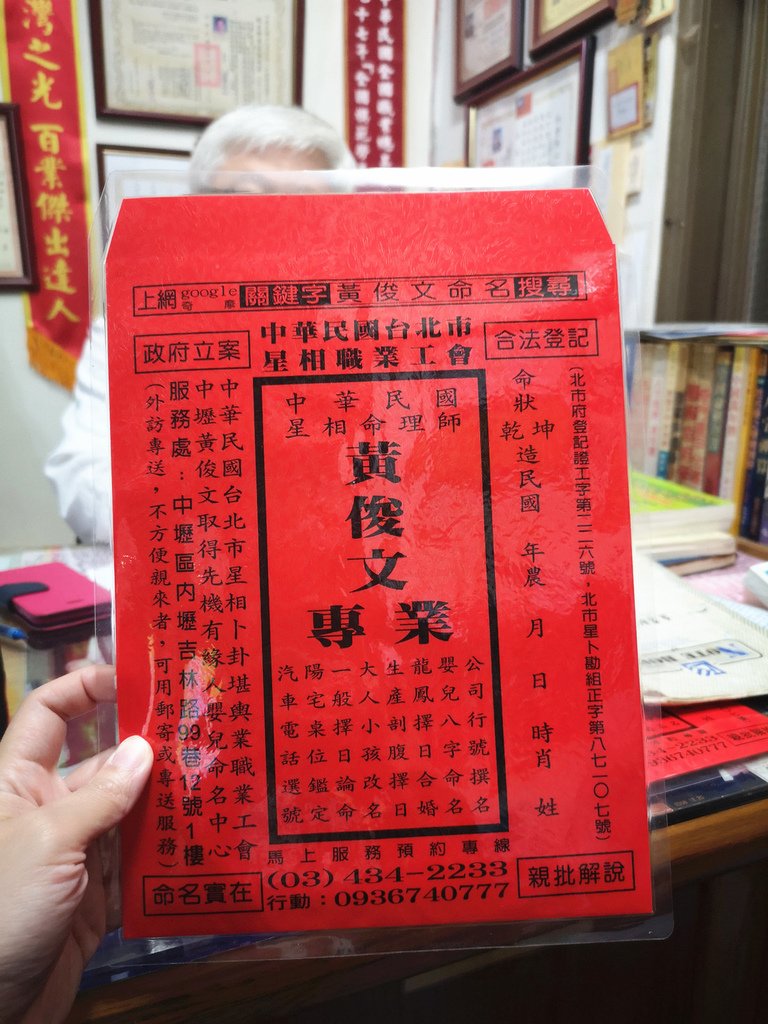 灣之光 百業傑出達人
中華民國全國職業總工
上網 google 奇摩 關鍵字 黃俊文命名 搜尋
政府立案
中華民國台北市
星相職業工會
合法登記
(北市府登記證工字第二二六號,北市星卜勘組正字第八七一0七號)
命狀
乾坤造民國 年農 月 日 時肖 姓
中華民國
星相命理師
黃俊文
專業
公司行號撰名
嬰兒八字命名
龍鳳擇日合婚
生產剖腹擇日
大人小孩改名
一般擇日論命
陽宅桌位鑑定
汽車電話選號
中華民國台北市星相卜卦堪輿業職業工會
中壢黃俊文取得先機有緣人嬰兒命名中心
服務處:中壢區内壢吉林路99巷12號1樓
(外訪專送,不方便親來者,可用郵寄或專送服務)
命名實在
馬上服務預約專線
(03) 434-2233
行動:0936740777
親批解說
434-2233
0936740777